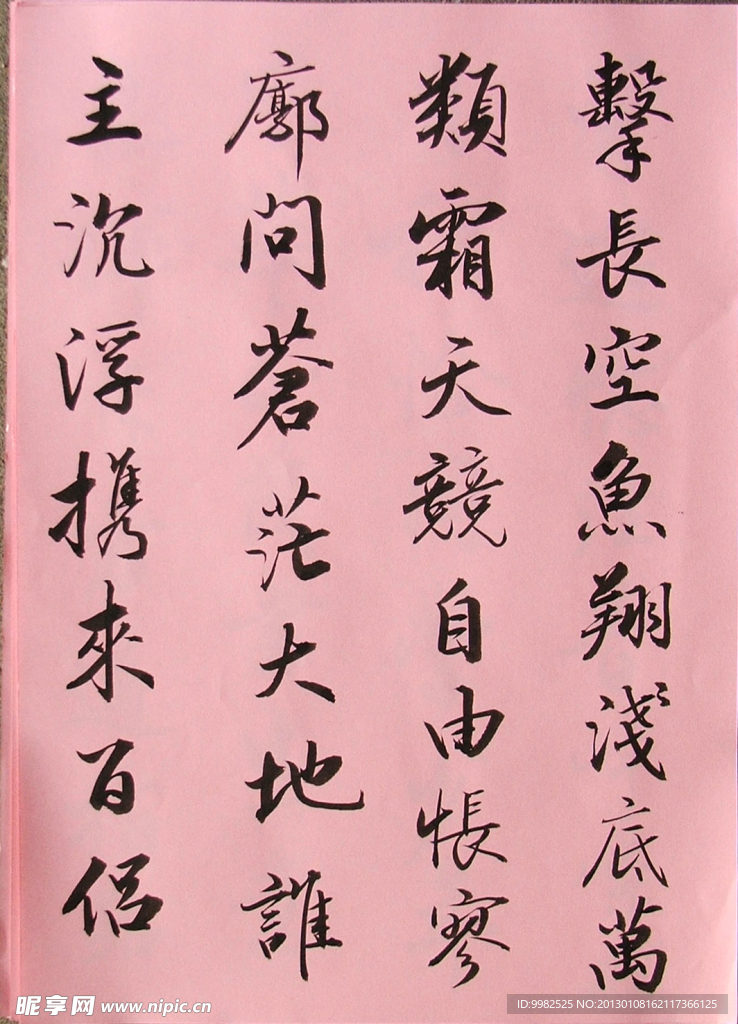 擊長空魚翔淺底萬
類霜天競自由悵寥
廓問蒼茫大地誰
主沉浮携來百侶
昵享网 www.nipic.cn
ID:9982525 NO:20130108162117366125